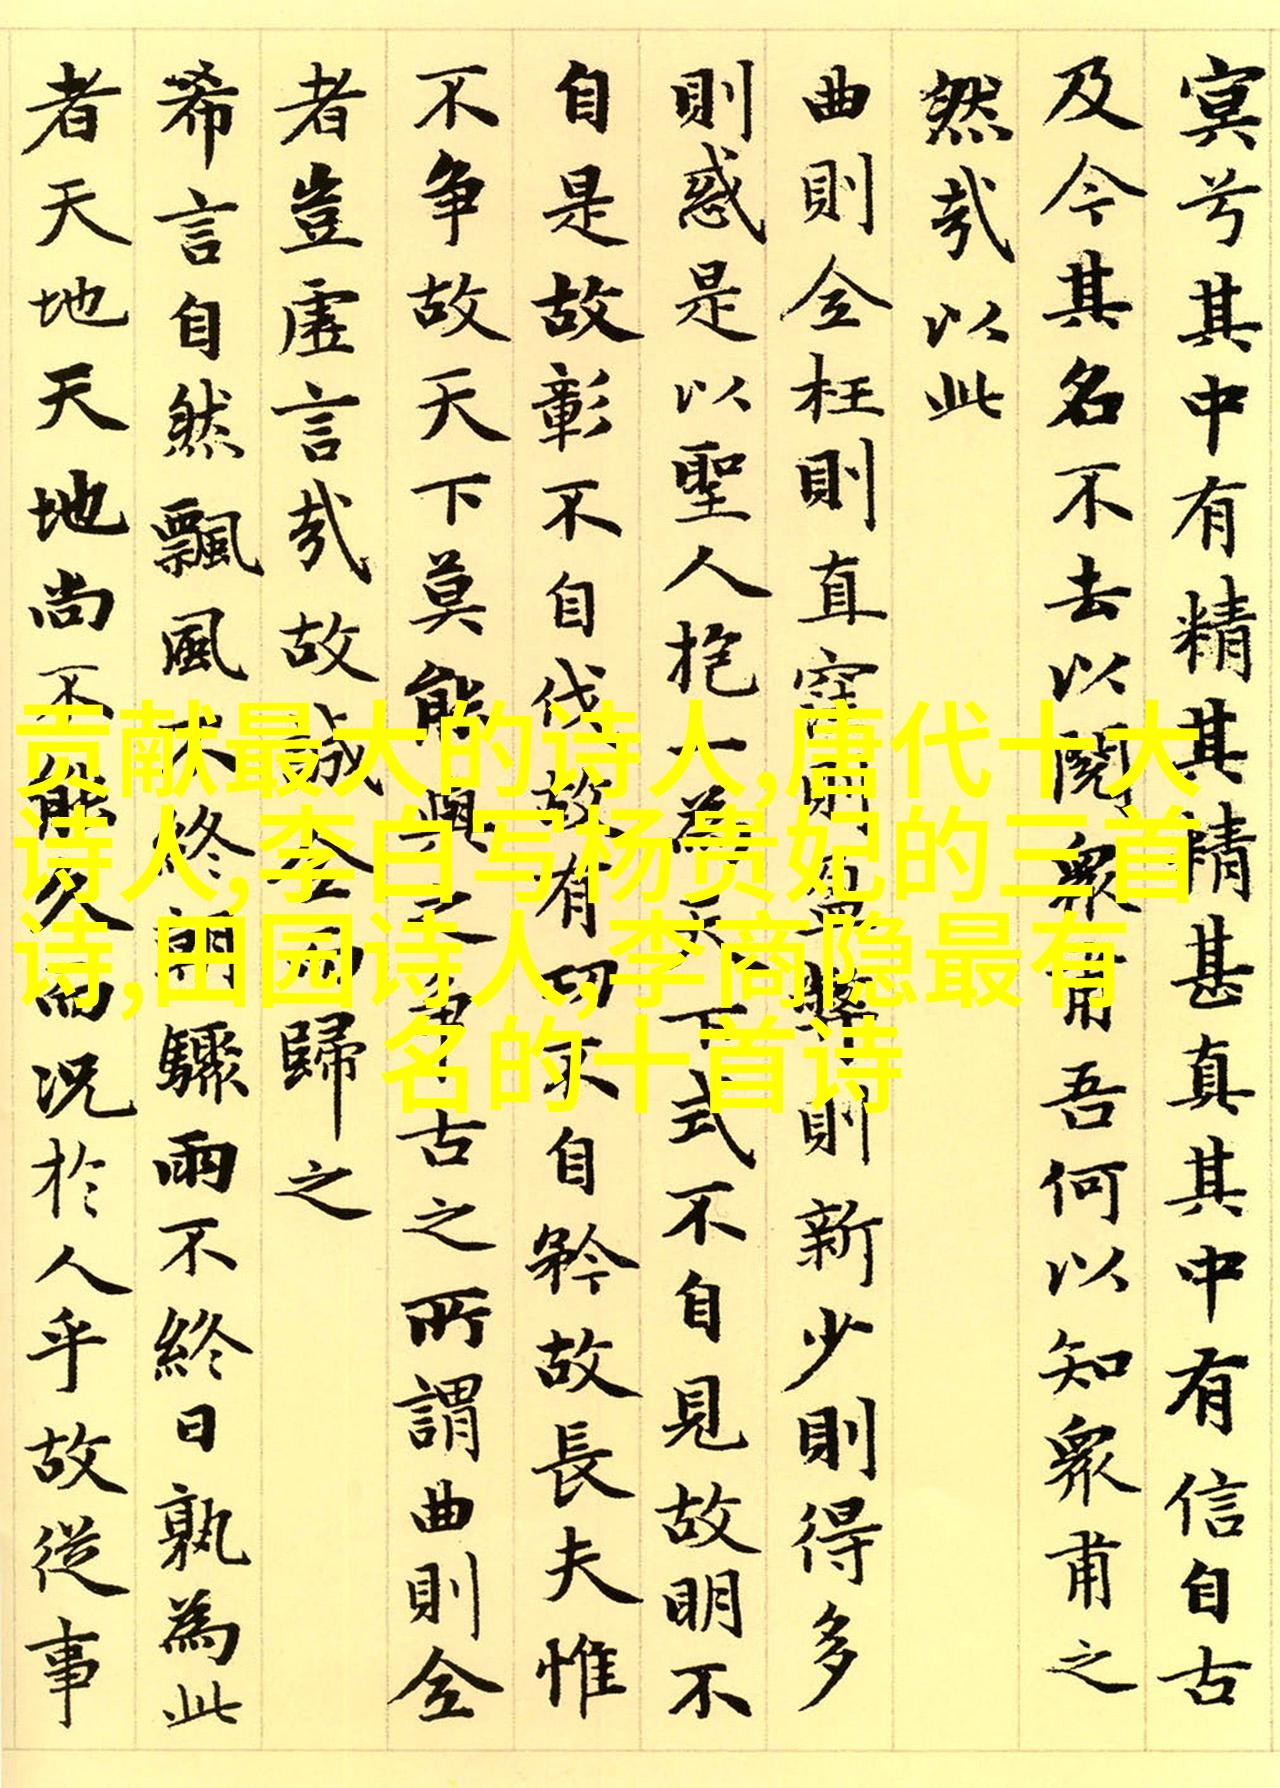 冥兮其中有精其精甚真其中有信自古
及今其名不去以閱衆甫吾何以知衆甫之
然㢤以此
曲則全枉則直窪則盈弊則新少則得多
則惑是以聖人抱一為天下式不自見故明不
自是故彰不自伐故有功不自矜故長夫惟
不争故天下莫能與之争古之所謂曲則全
者豈虛言㢤故誠全而歸之
希言自然飄風不終朝驟雨不終日孰為此
者天地天地尚不能久而况於人乎故從事
贡献最大的诗人,唐代十大
诗人,李白写杨贵妃的三首
诗,田园诗人,李商隐最有
名的十首诗